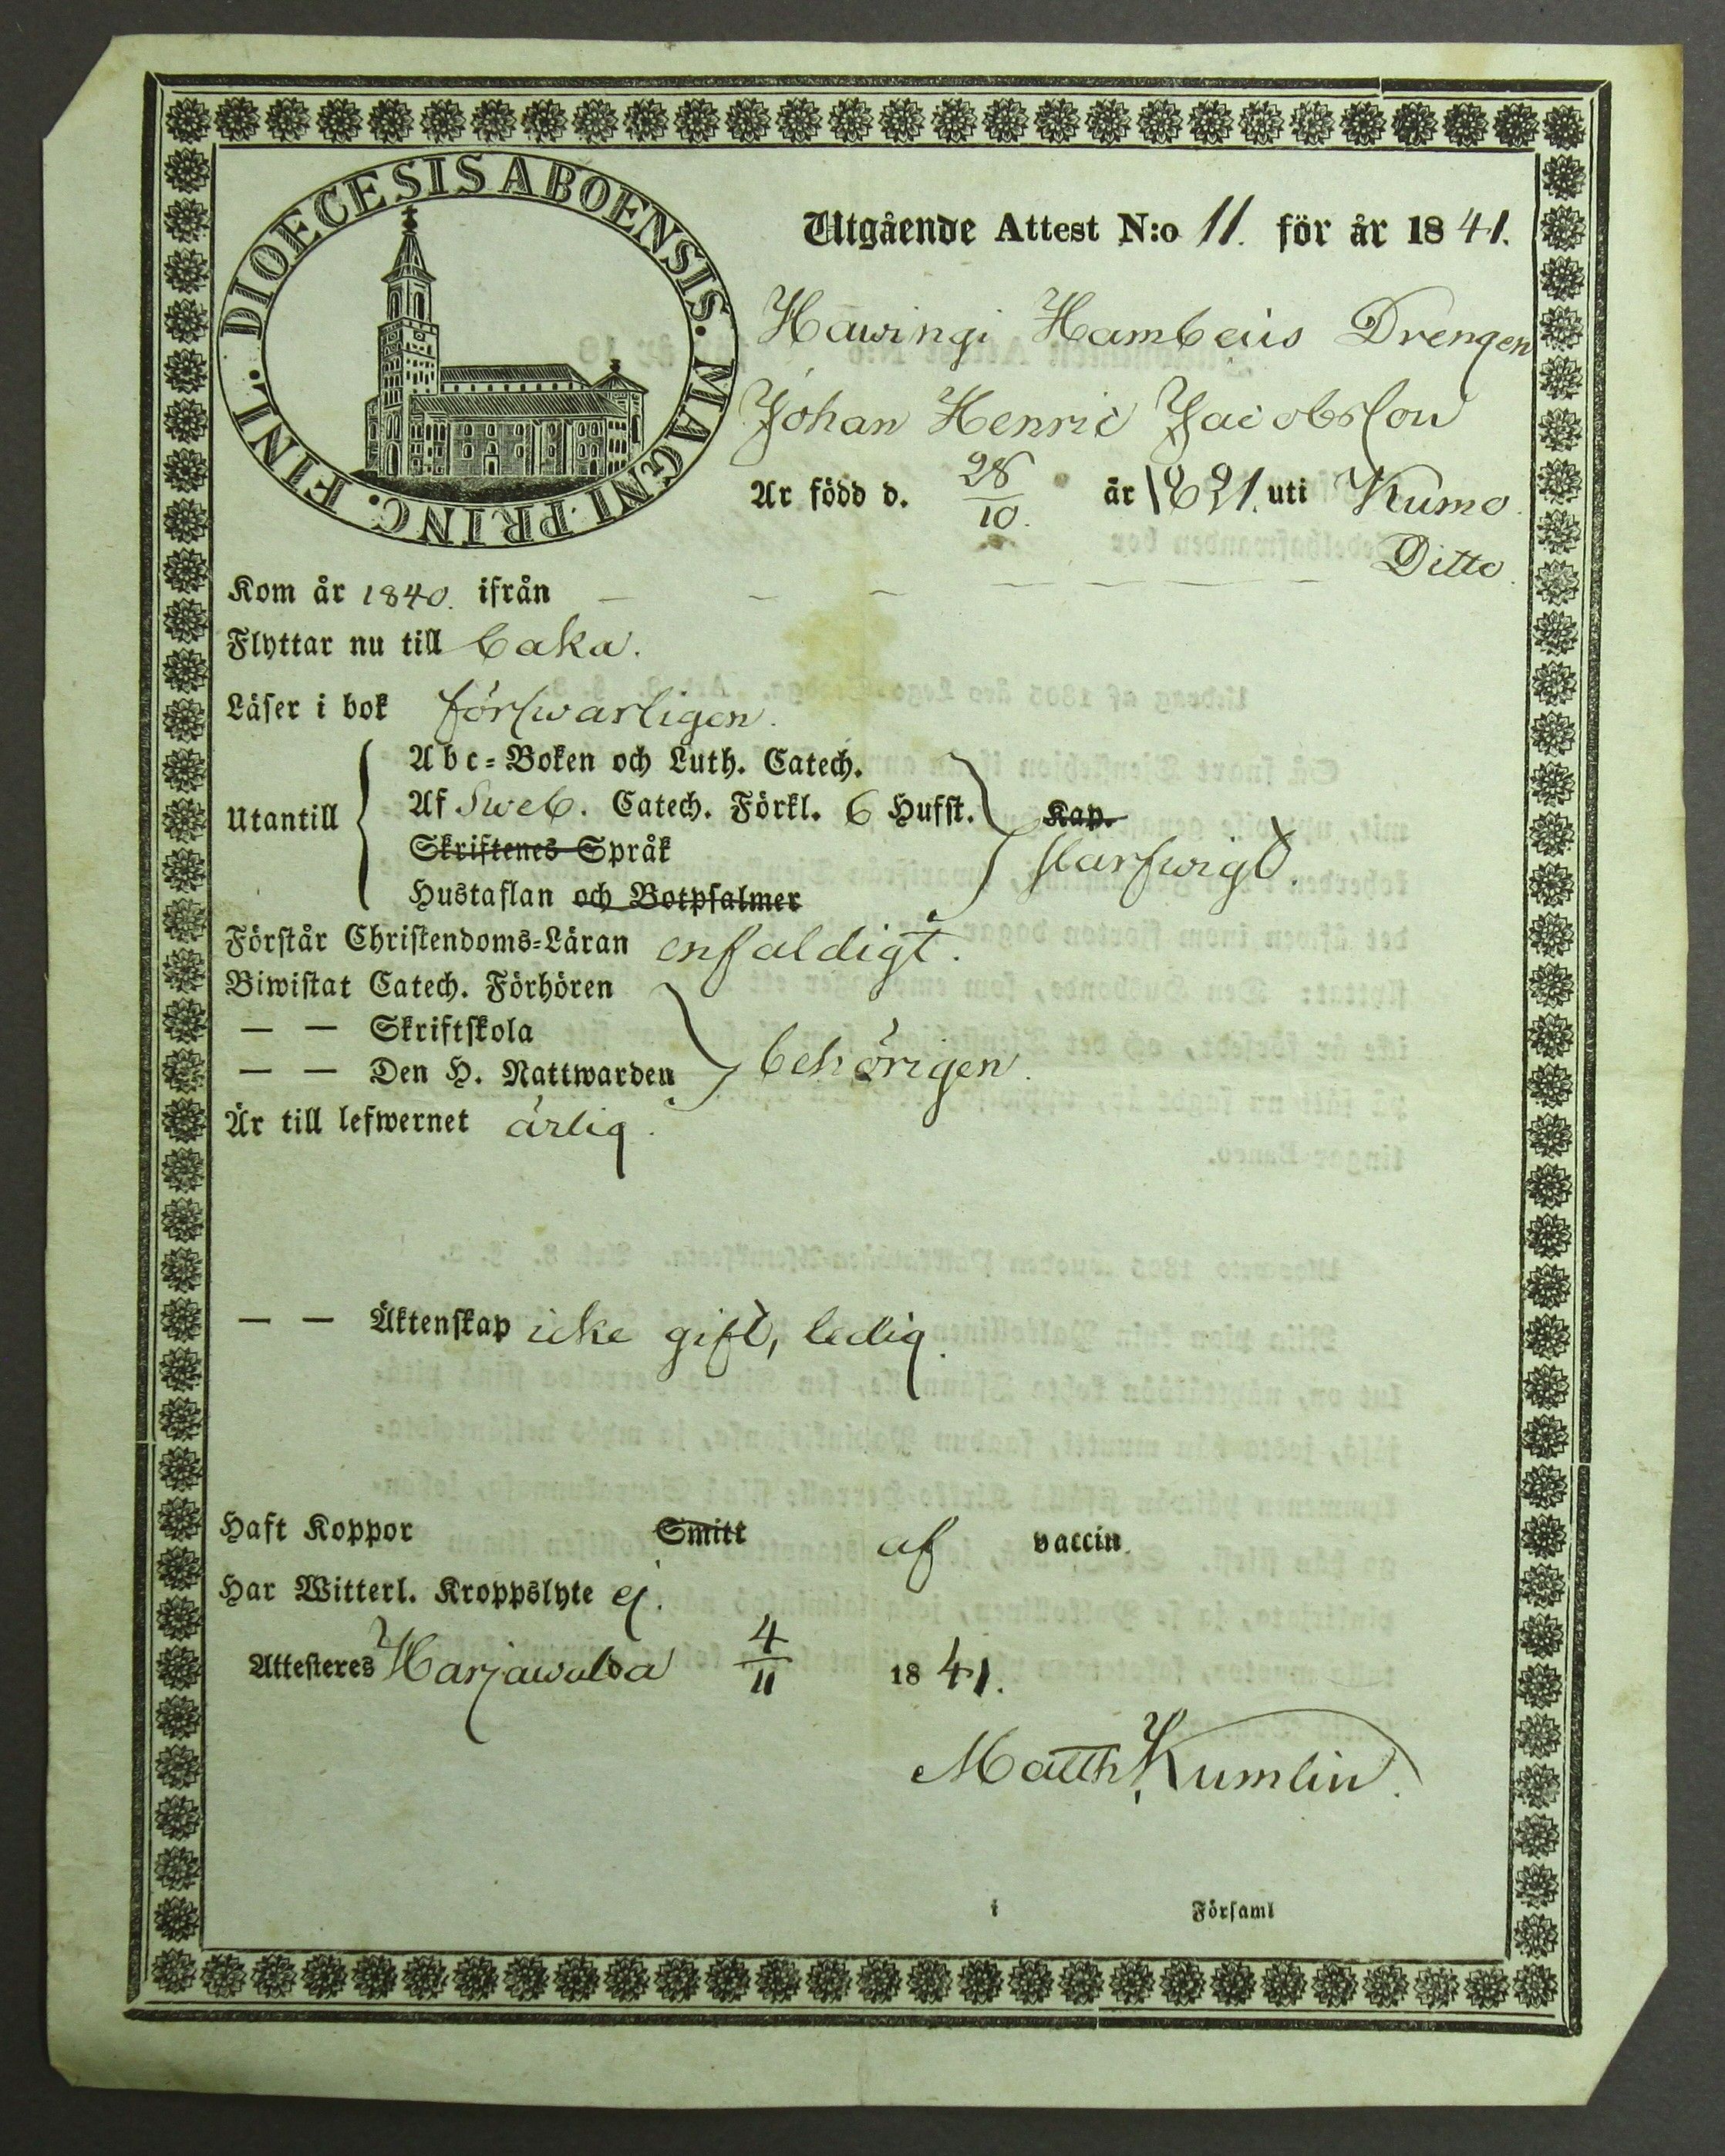 DIOECESIS ABOENSIS. MAGNI PRINC. FINL.
Utgående Attest N:o 11. för år 1841.
Hawingi Hambeus Drengen
Johan Henric Jacobsson
Är född d. 28/10. år 1821. uti Kumo.
Kom år 1840. ifrån — — — Ditto.
Flyttar nu till baka.
Läser i bok förswarligen.
Utantill
Abc-Boken och Luth. Catech.
Af Sweb. Catech. Förkl. 6 Hufst. Kap.
Skriftenes Språk
Hustaflan och Botpsalmer
Förstår Christendoms-Läran enfaldigt.
Biwistat Catech. Förhören
— — Skriftskola
— — Den H. Nattwarden behörigen.
Är till lefwernet ärlig.
— — Äktenskap icke gift, ledig.
Haft Koppor Smitt af vaccin.
Har Witterl. Kroppslyte ej.
Attesteres Harjawalda 4/11 1841.
Matth Kumlin.
i Församl